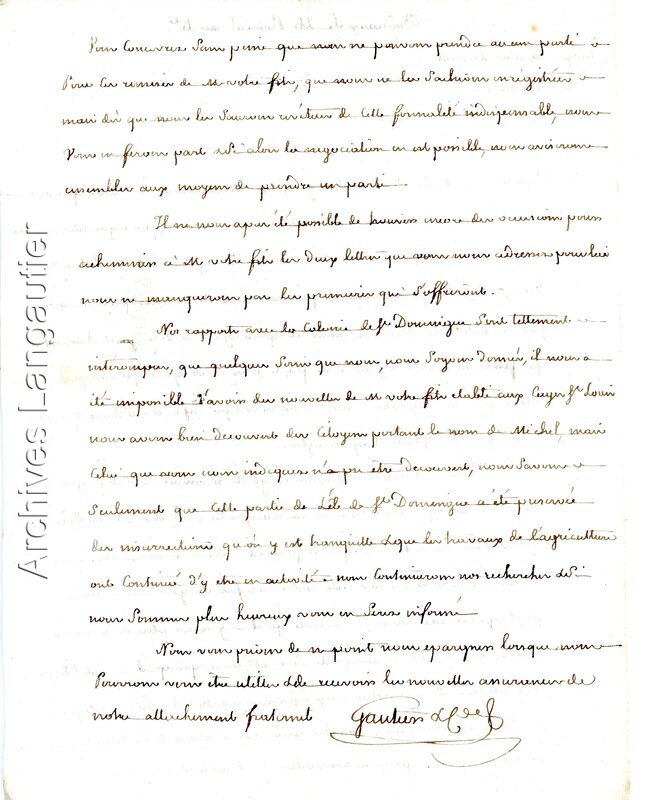 Vous concevrez sans peine que nous ne pouvons prendre aucun parti
Pour les remises de M votre fils, que nous ne les sachions enregistrées
mais dès que nous les saurons revêtues de cette formalité indispensable, nous
Vous en ferons part & Si alors la negociation en est possible, nous aviserons
ensembles aux moyens de prendre un parti
Il ne nous a pas été posible de trouver encore des occasions pour
acheminer à M votre fils les deux lettres que vous nous adressés pour lui
nous ne manquerons pas les premieres qui S'offriront.
Nos rapports avec la Colonie de St Domingue Sont tellement
interompus, que quelques Soins que nous, nous Soyons donnés, il nous a
été imposible d'avoir des nouvelles de M votre fils etabli aux Cayes St Louis
nous avons bien decouvert des Citoyens portant le nom de Michel, mais
Celui que vous nous indiques n'a pu être decouvert, nous Savons
Seulement que Cette partie de L'île de St Domingue a été preservée
des insurrections qu'on y est tranquille & que les travaux de l'agriculture
ont Continué d'y etre en activité. nous Continuerons nos recherches & Si
nous Sommes plus heureux vous en Serez informé
Nous vous prions de ne point nous epargner lorsque nous
Pourrons vous être utiles & de recevoir les nouvelles assurances de
notre attachement fraternel Gautier
Archives Langautier